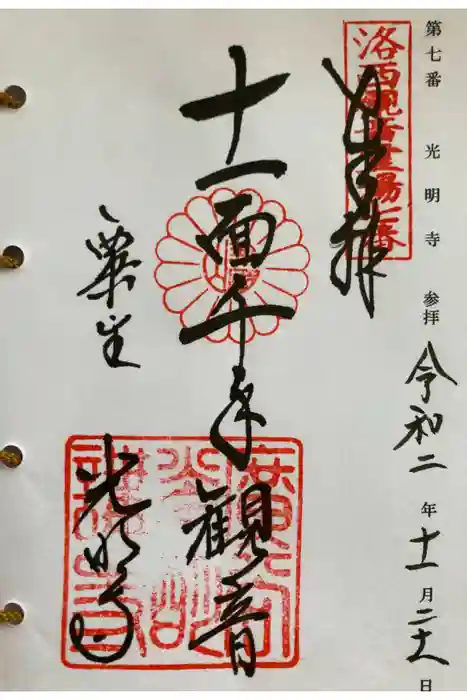 第七番 光明寺 参拝 令和二年十一月二十八日
奉拝
洛西観音霊場七番
十一面千手観音
粟生
光明寺